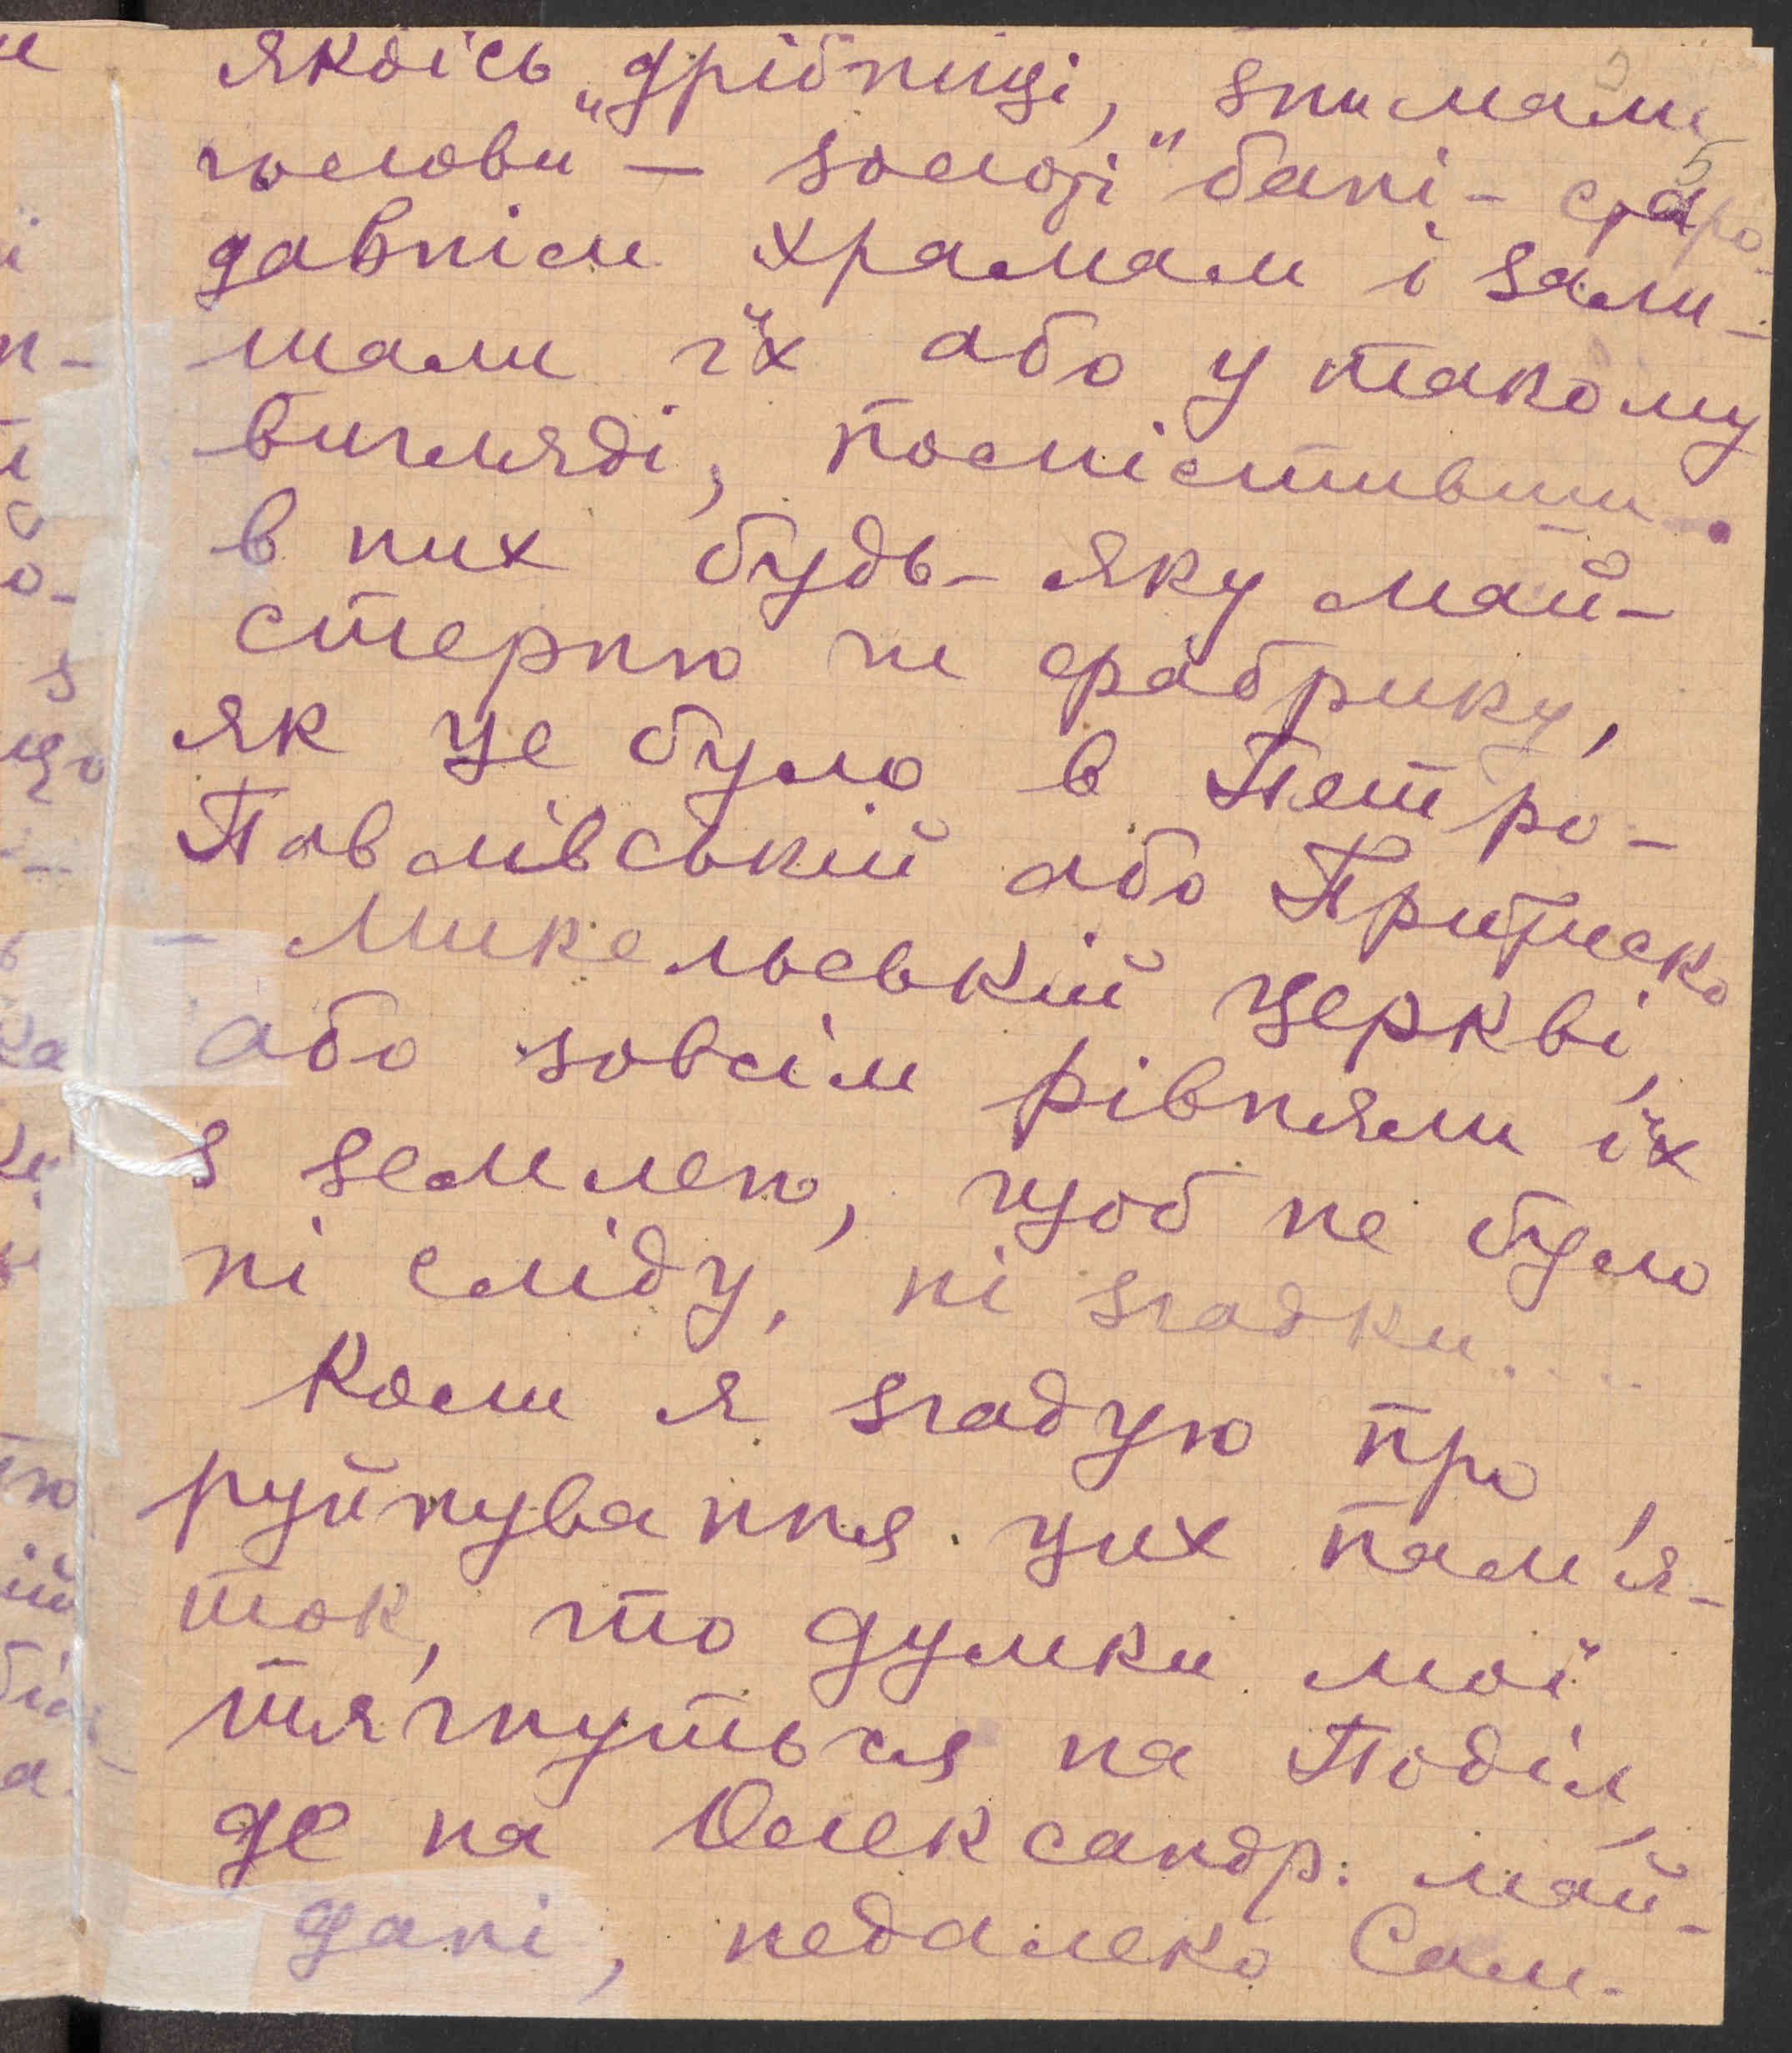 якоїсь „дрібниці, знимали
голови — золоті" бані - старо-
давнім храмам і зали-
шали їх або у такому
вигляді, помістивши
в них будь-яку май-
стерню чи фабрику,
як це було в Петро-
Павлівській або Притиско
- Микольській церкві,
або зовсім рівняли їх
з землею, щоб не було
ні сліду, ні згадки....
Коли я згадую про
руйнування цих пам'я-
ток, то думки мої
тягнуться на Поділ,
де на Олександр. май-
дані, недалеко Сам.